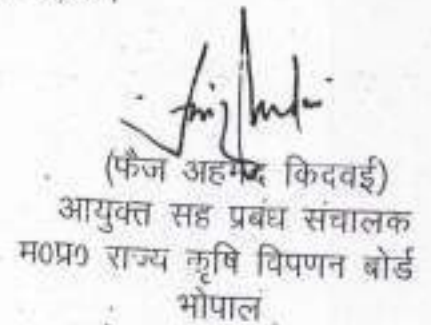 (फैज अहमद किदवई)
आयुक्त सह प्रबंध संचालक
म०प्र० राज्य कृषि विपणन बोर्ड
भोपाल